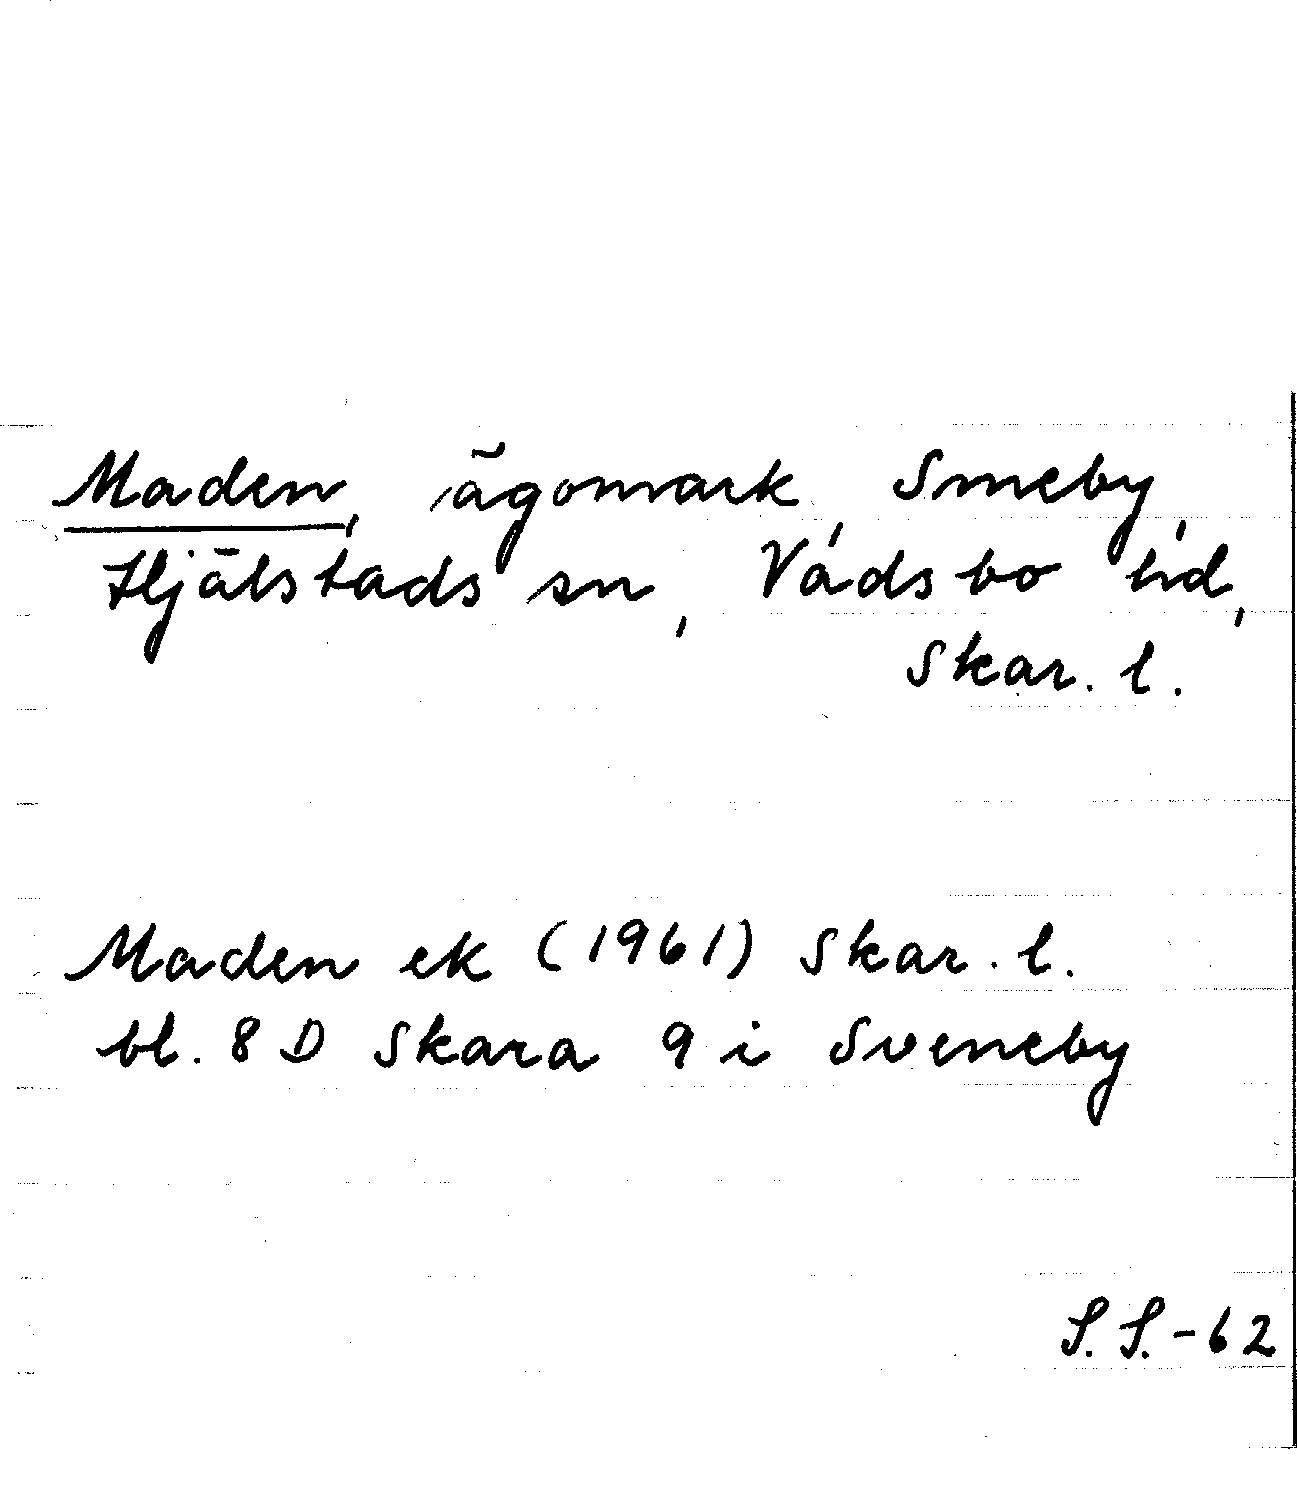 Maden, ägomark, Smeby,
Hjälstads sn, Vadsbo hd,
Skar. l.
Maden ek (1961) Skar. l.
bl. 8 D Skara 9 i Sveneby
S. S. - 62